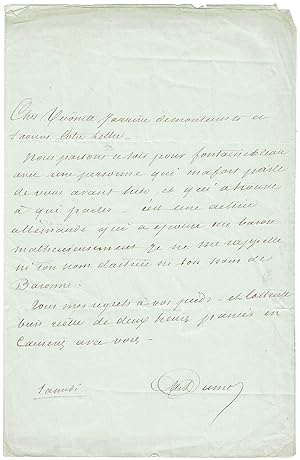 Cher Vicomte j'arrive de
trouve votre lettre.
Nous partons ce soir pour fontainebleau
avec une personne qui m'a fort parlé
de vous avant hier, et qui a trouvé
à qui parler - c'est une actrice
allemande qui a épousé un baron
malheureusement je ne me rappelle
ni son nom d'actrice ni son nom de
Baronne.
Tous mes regrets à vos pieds - et
de deux heures passées en
causerie avec vous -
Samedi